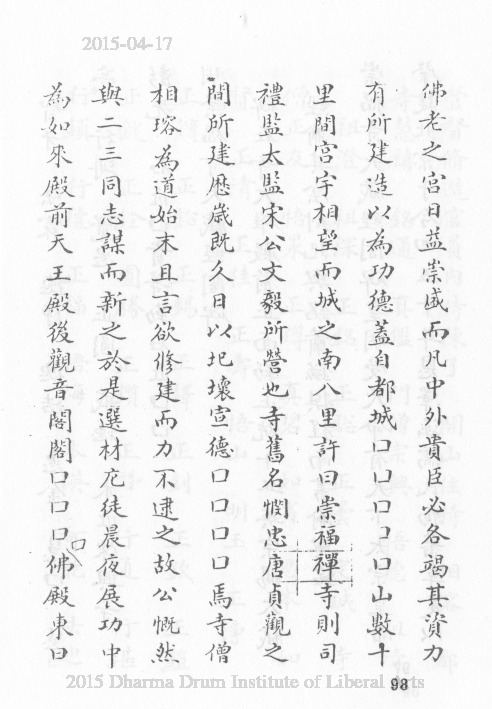 2015-04-17
佛老之宮日益崇盛而凡中外貴臣必各竭其資力
有所建造以為功德蓋自都城口口口口山數十
里間宮宇相望而城之南八里許曰崇福禪寺則司
禮監太監宋公文毅所營也寺舊名憫忠唐貞觀之
間所建歷歲既久日以圯壞宣德口口口口焉寺僧
相瑢為道始末且言欲修建而力不逮之故公慨然
與二三同志謀而新之於是選材庀徒晨夜展功中
為如來殿前天王殿後觀音閣閣口口口口佛殿東曰
98
2015 Dharma Drum Institute of Liberal Arts